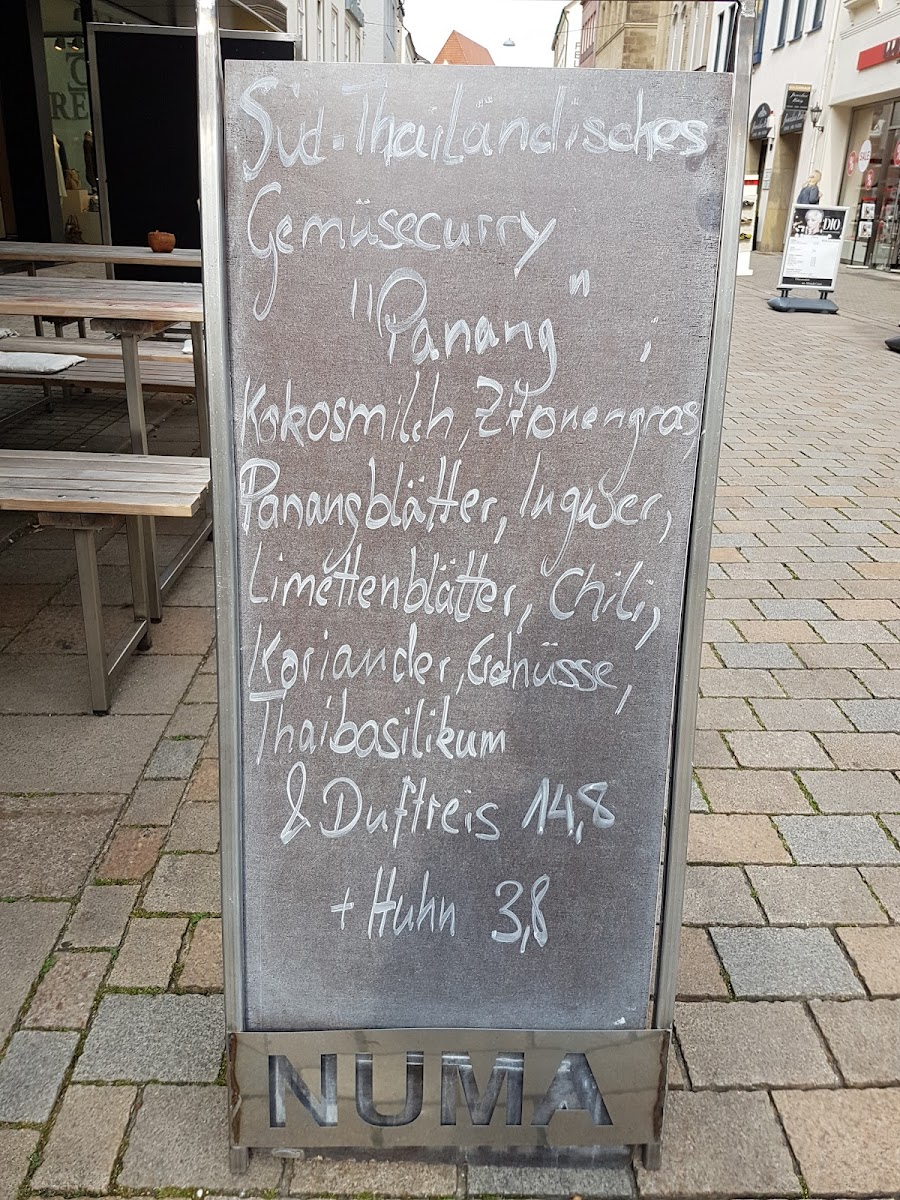 Süd-Thailändisches
Gemüsecurry
"Panang",
Kokosmilch, Zitronengras,
Panangblätter, Ingwer,
Limettenblätter, Chili,
Koriander, Erdnüsse,
Thaibasilikum
& Duftreis 14,8
+ Huhn 3,8
NUMA
DIO
SALE